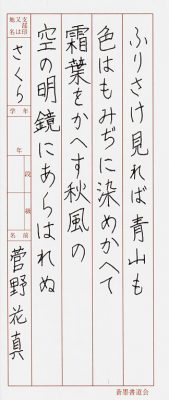 ふりさけ見れば青山も
色はもみぢに染めかへて
霜葉をかへす秋風の
空の明鏡にあらはれぬ
支部印又は地名
さくら
学年
段級
名前
菅野花真
蒼墨書道会